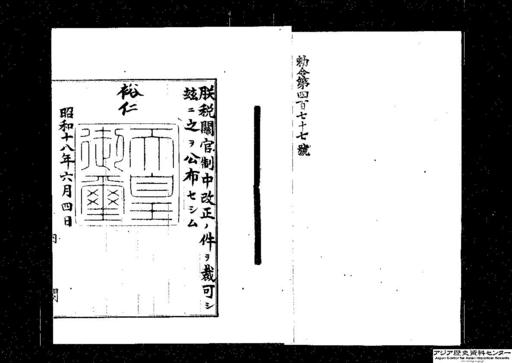 勅令第四百七十七號
朕税關官制中改正ノ件ヲ裁可シ
玆ニ之ヲ公布セシム
裕仁
天皇御璽
昭和十八年六月四日
アジア歴史資料センター
Japan Center for Asian Historical Records